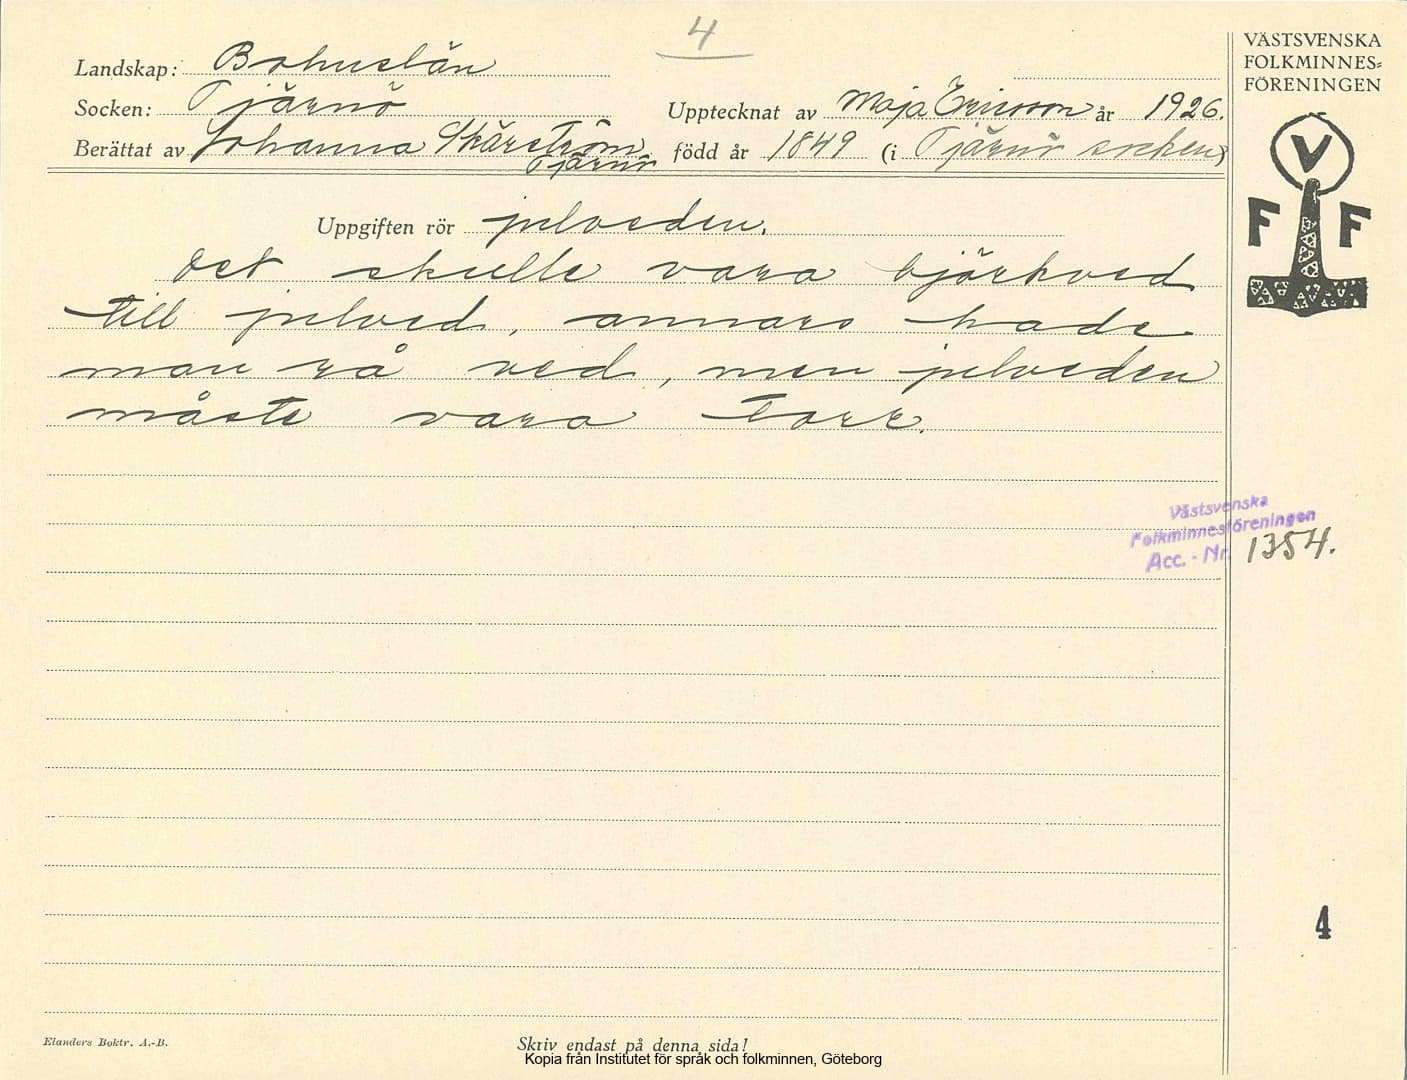 4
Landskap: Bohuslän
Socken: Tjärnö
Upptecknat av Maja Ericson år 1926.
Berättat av Johanna Skärström född år 1849 (i Tjärnö socken)
Tjärnö
Uppgiften rör julveden.
Det skulle vara björkved
till julved, annars hade
man rå ved, men julveden
måste vara torr.
VÄSTSVENSKA
FOLKMINNES=
FÖRENINGEN
V
F F
Västsvenska
Folkminnesföreningen
Acc. - Nr. 1354.
4
Elanders Boktr. A.-B.
Skriv endast på denna sida!
Kopia från Institutet för språk och folkminnen, Göteborg